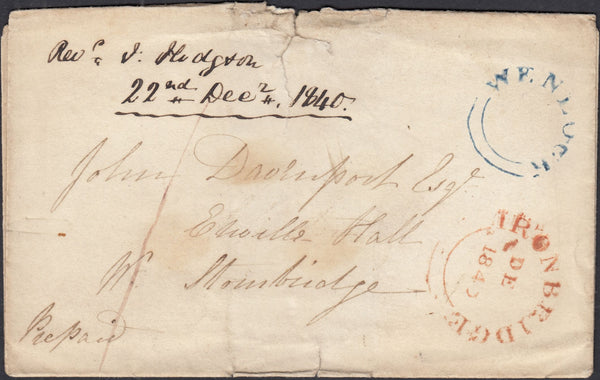 Revd. J. Hodgson
22nd Decr. 1840.
WENLOCK
John Davenport Esqr
Enville Hall
Nr. Stourbridge
Prepaid
IRONBRIDGE
DE
1840